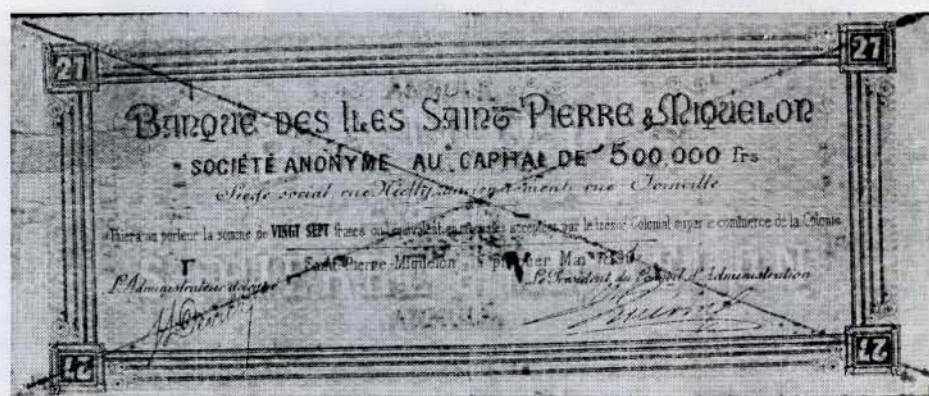 27 27
BANQUE DES ILES SAINT PIERRE & MIQUELON
SOCIÉTÉ ANONYME AU CAPITAL DE 500,000 Frs
Siège social rue Joinville
Paiera au porteur la somme de VINGT SEPT francs ou l'équivalent en acceptées par le trésor Colonial commerce de la Colonie
Saint-Pierre-Miquelon Mai
L'Administrateur délégué Le Président du Conseil d'Administration
27 27